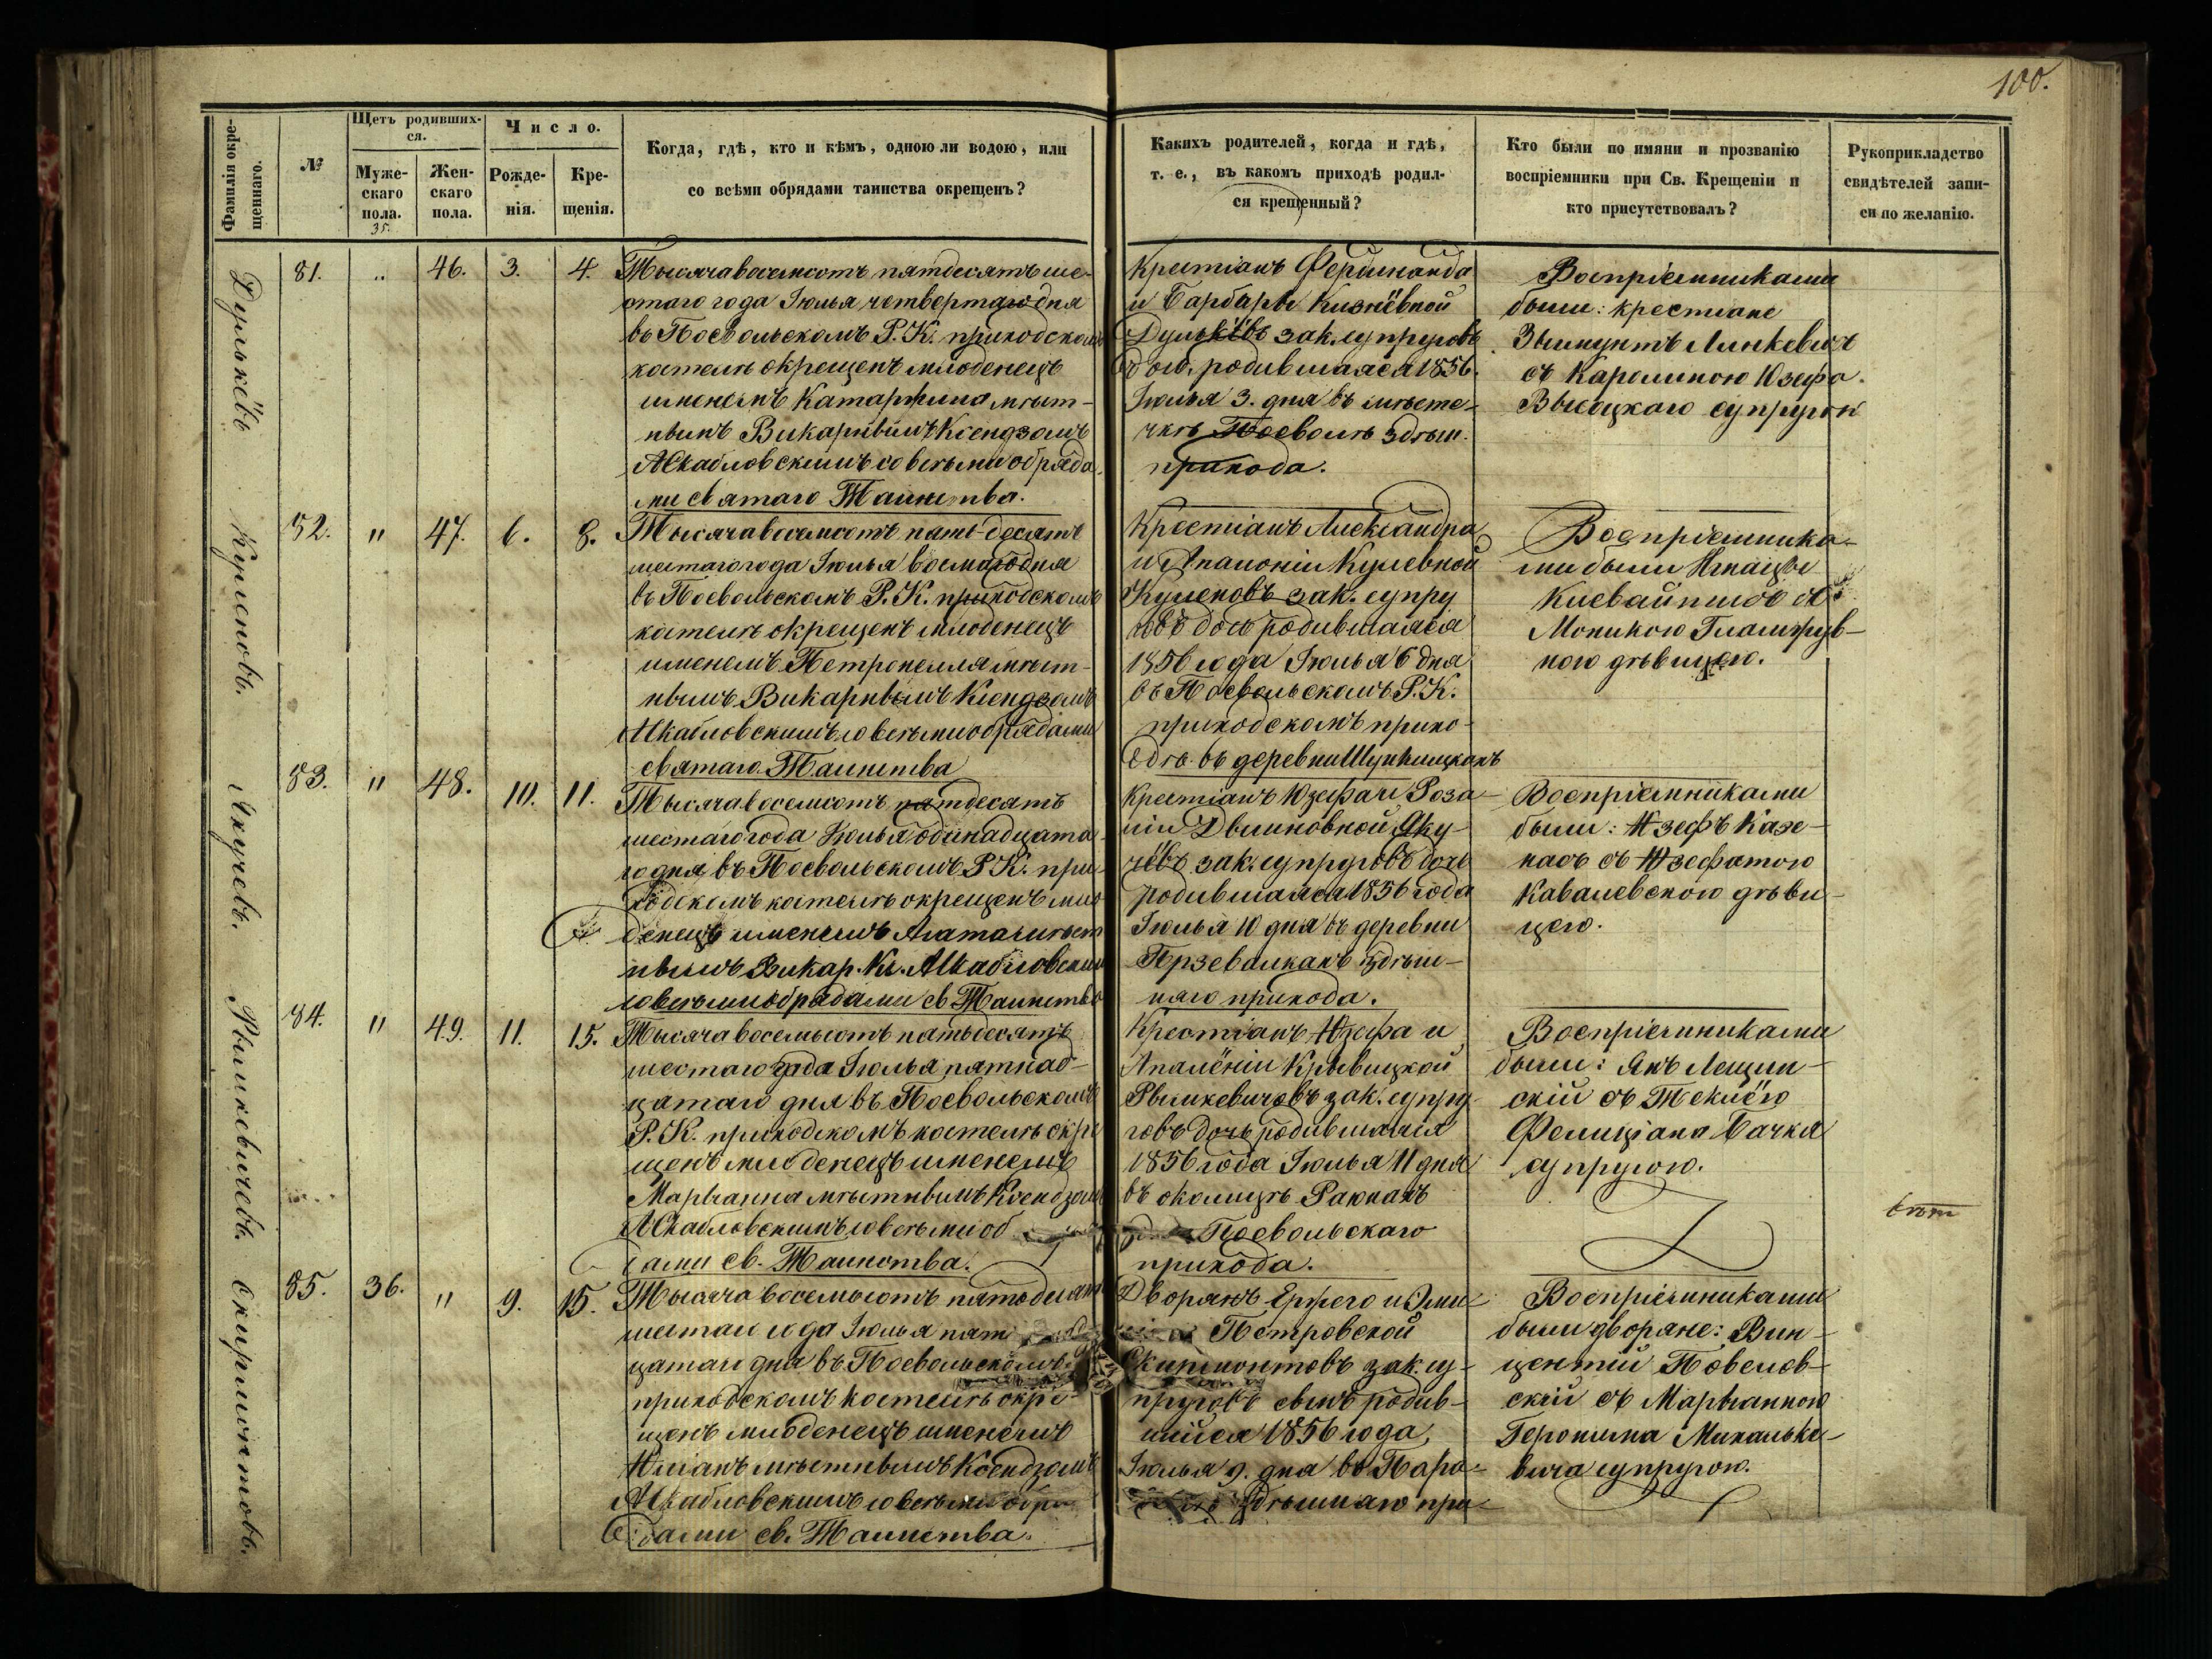 100.
Фамилія окре-
щеннаго.
№
Щетъ родивших-
ся.
Муже-
скаго
пола.
35.
Жен-
скаго
пола.
Число.
Рожде-
нія.
Кре-
щенія.
Когда, гдѣ, кто и кѣмъ, одною ли водою, или
со всѣми обрядами таинства окрещенъ?
Какихъ родителей, когда и гдѣ,
т. е., въ какомъ приходѣ родил-
ся крещенный?
Кто были по имяни и прозванію
воспріемники при Св. Крещеніи и
кто присутствовалъ?
Рукоприкладство
свидѣтелей запи-
си по желанію.
81. „ 46. 3. 4.
Тысяча восемсотъ пятдесятъ ше-
стаго года Іюлья четвертаго дня
въ Поевольскомъ Р. К. приходскомъ
костелѣ окрещенъ младенецъ
именемъ Катаржина мѣст-
нымъ Викарнымъ Ксендзомъ
со всѣми обряда-
ми святаго Таинства.
Крестіанъ Фердинанда
и Барбары
зак. супруговъ
дочь, родившаяся 1856.
Іюлья 3. дня въ мѣсте-
чкѣ Поеволѣ здѣш.
прихода.
Воспріемниками
были: крестіане
Зыгмунтъ Линкевичъ
съ Каролиною Юзефа
Высоцкаго супругою
Куленовъ.
82. „ 47. 6. 8.
Тысяча восемсотъ пять десятъ
шестаго года Іюлья восмаго дня
въ Поевольскомъ Р. К. приходскомъ
костелѣ окрещенъ младенецъ
именемъ Петронелля мѣст-
нымъ Викарнымъ Ксендзомъ
со всѣми обрядами
святаго Таинства
Крестіанъ Александра
и Апалоніи
Куленовъ зак. супру
говъ дочь родившаяся
1856 года Іюлья 6 дня
въ Поевольскомъ Р. К.
приходскомъ прихо-
дѣ въ деревни
Воспріемника-
ми были Игнацы
съ
Моникою
ною дѣвицею.
Якучевъ.
83. „ 48. 10. 11.
Тысяча восемсотъ пятдесятъ
шестаго года Іюлья одинадцата-
го дня въ Поевольскомъ Р. К. при-
ходскомъ костелѣ окрещенъ мла
денецъ именемъ Агата мѣст
нымъ Викар. Кс.
со всѣми обрядами св Таинства
Крестіанъ Юзефа и Роза-
ліи Яку-
чёвъ зак. супруговъ дочь
родившаяся 1856 года
Іюлья 10 дня въ деревни
Прзевалкахъ здѣш-
няго прихода.
Воспріемниками
были: Юзефъ Казе-
насъ съ Юзефатою
Кавалевскою дѣви-
цею.
Рымкевичевъ.
84. „ 49. 11. 15.
Тысяча восемьсотъ пятьдесятъ
шестаго года Іюлья пятнад-
цатаго дня въ Поевольскомъ
Р. К. приходскомъ костелѣ окре
щенъ младенецъ именемъ
Марыанна мѣстнымъ Ксендзомъ
со всѣми об
дами св. Таинства.
Крестіанъ Юзефа и
Апалёніи Крывицкой
Рымкевичовъ зак. супру-
говъ дочь родившаяся
1856 года Іюлья 11 дня
въ околицѣ
Поевольскаго
прихода.
Воспріемниками
были: Янъ Лещин-
скій съ Теклёю
Фелиціана Бачка
супругою.
Скирмонтовъ.
85. 36. „ 9. 15.
Тысяча восемьсотъ пятьдесят
шестаго года Іюлья пят
цатаго дня въ Поевольскомъ
приходскомъ костелѣ окре-
щенъ младенецъ именемъ
Юліанъ мѣстнымъ Ксендзомъ
со всѣми обря
дами св. Таинства.
Дворянъ Ержего и Эми-
Петровской
Скирмонтовъ зак. су-
пруговъ сынъ родив-
шійся 1856 года,
Іюлья 9. дня въ
здѣшнаго при-
Воспріемниками
были дворяне: Вин-
центій
скій съ Марыанною
Геронима Михальке-
вича супругою.